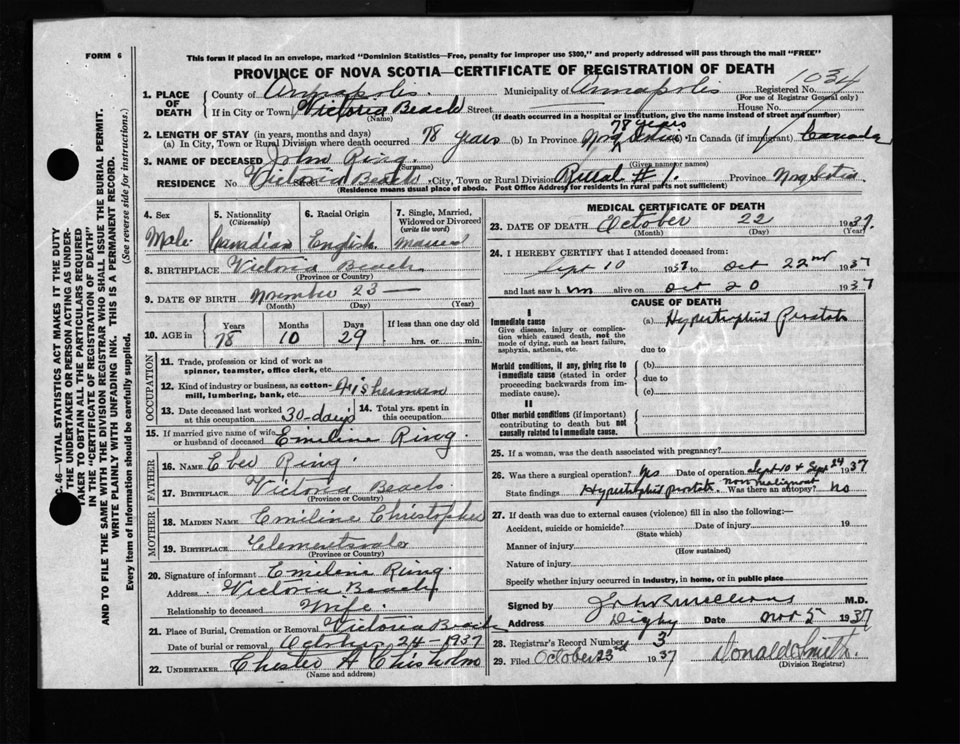 FORM 6
This form if placed in an envelope, marked "Dominion Statistics—Free, penalty for improper use $300," and properly addressed will pass through the mail "FREE"
PROVINCE OF NOVA SCOTIA—CERTIFICATE OF REGISTRATION OF DEATH
1034
1. PLACE OF DEATH
County of Annapolis Municipality of Annapolis Registered No.
(For use of Registrar General only)
If in City or Town Victoria Beach Street House No.
(Name) (If death occurred in a hospital or institution, give the name instead of street and number)
2. LENGTH OF STAY (in years, months and days)
(a) In City, Town or Rural Division where death occurred 78 years (b) In Province 78 years Nova Scotia (c) In Canada (if immigrant) Canada
3. NAME OF DECEASED John Ring
(Surname) (Given name or names)
RESIDENCE No. Victoria Beach Street City, Town or Rural Division Rural #1. Province Nova Scotia
(Residence means usual place of abode. Post Office Address for residents in rural parts not sufficient)
4. Sex Male
5. Nationality (Citizenship) Canadian
6. Racial Origin English
7. Single, Married, Widowed or Divorced (write the word) Married
8. BIRTHPLACE Victoria Beach
(Province or Country)
9. DATE OF BIRTH November 23 —
(Month) (Day) (Year)
10. AGE in Years 78 Months 10 Days 29 If less than one day old
hrs. or min.
OCCUPATION
11. Trade, profession or kind of work as spinner, teamster, office clerk, etc.
12. Kind of industry or business, as cotton-mill, lumbering, bank, etc. Fisherman
13. Date deceased last worked at this occupation 30 days
14. Total yrs. spent in this occupation
15. If married give name of wife or husband of deceased Emiline Ring
FATHER
16. NAME Eber Ring
17. BIRTHPLACE Victoria Beach
(Province or Country)
MOTHER
18. MAIDEN NAME Emiline Christopher
19. BIRTHPLACE Clementsvale
(Province or Country)
20. Signature of informant Emiline Ring
Address Victoria Beach
Relationship to deceased Wife.
21. Place of Burial, Cremation or Removal Victoria Beach
Date of burial or removal October 24-1937
22. UNDERTAKER Chester A Chisholm
(Name and address)
MEDICAL CERTIFICATE OF DEATH
23. DATE OF DEATH October 22 1937.
(Month) (Day) (Year)
24. I HEREBY CERTIFY that I attended deceased from:
Sept 10 1937 to Oct 22nd 1937
and last saw him alive on Oct 20 1937
CAUSE OF DEATH
I
Immediate cause
Give disease, injury or complication which caused death, not the mode of dying, such as heart failure, asphyxia, asthenia, etc.
(a) Hypertrophied Prostate
due to
Morbid conditions, if any, giving rise to immediate cause (stated in order proceeding backwards from immediate cause).
(b)
due to
(c)
II
Other morbid conditions (if important) contributing to death but not causally related to immediate cause.
25. If a woman, was the death associated with pregnancy?
26. Was there a surgical operation? Yes Date of operation Sept 10 & Sept 24 1937
State findings Hypertrophied prostate non malignant Was there an autopsy? No
27. If death was due to external causes (violence) fill in also the following:—
Accident, suicide or homicide? Date of injury 19
(State which)
Manner of injury
(How sustained)
Nature of injury
Specify whether injury occurred in industry, in home, or in public place
Signed by M.D.
Address Digby Date Nov 5 1937
28. Registrar's Record Number 3
29. Filed October 23rd 1937 Donald Smith.
(Division Registrar)
C. 46—VITAL STATISTICS ACT MAKES IT THE DUTY
THE UNDERTAKER OR PERSON ACTING AS UNDERTAKER TO OBTAIN ALL THE PARTICULARS REQUIRED
IN THE "CERTIFICATE OF REGISTRATION OF DEATH"
AND TO FILE THE SAME WITH THE DIVISION REGISTRAR WHO SHALL ISSUE THE BURIAL PERMIT.
WRITE PLAINLY WITH UNFADING INK. THIS IS A PERMANENT RECORD.
Every item of information should be carefully supplied. (See reverse side for instructions.)